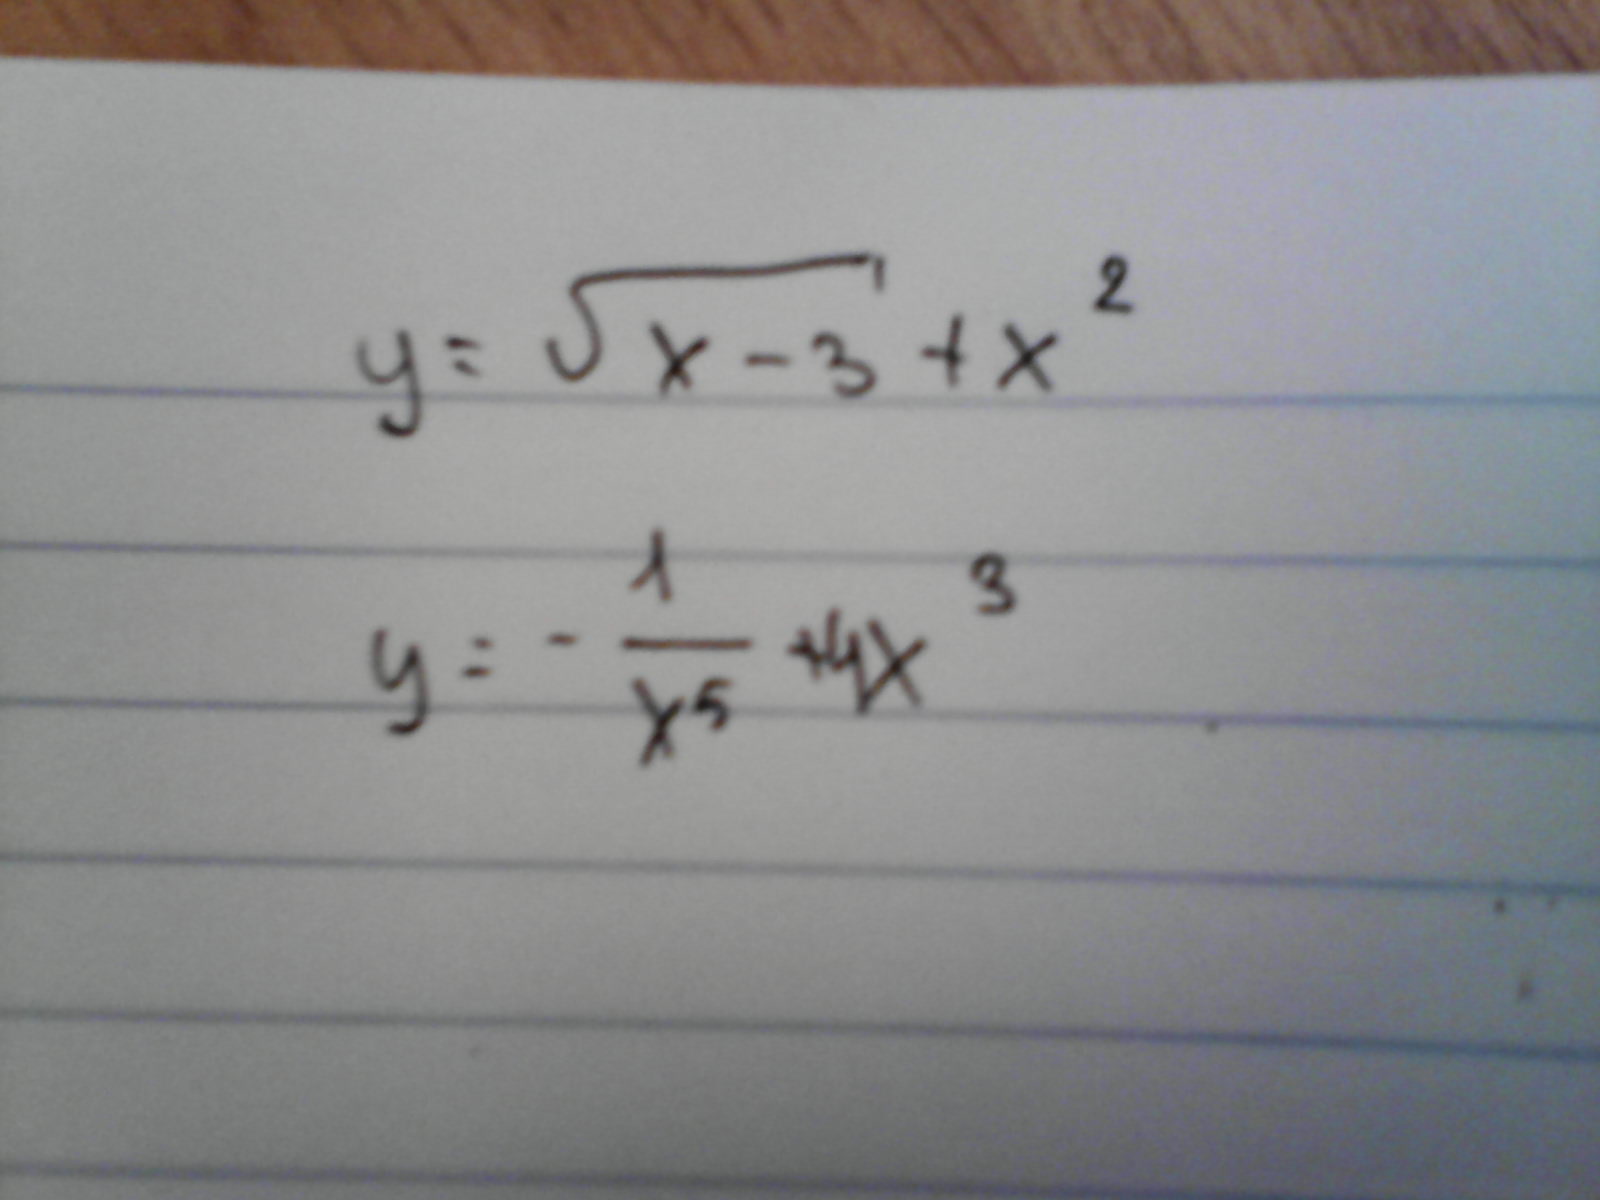 y = √(x - 3) + x²
y = - 1/x⁵ + 4x³